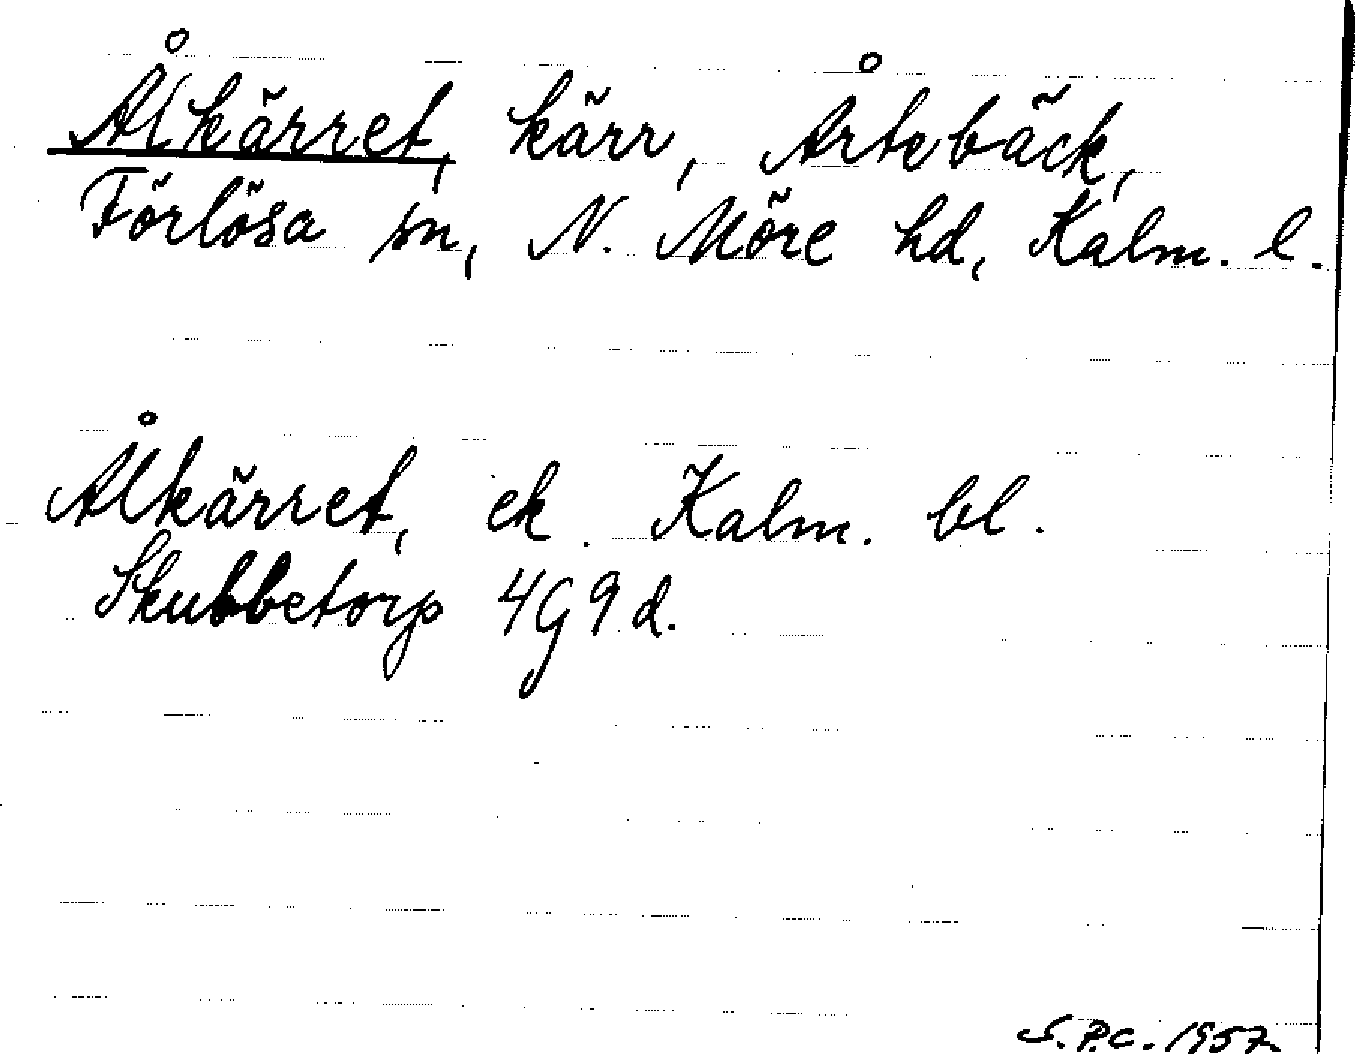 Ålkärret, kärr, Årtebäck,
Förlösa sn, N. Möre hd, Kalm. l.
Ålkärret, ek. Kalm. bl.
Skubbetorp 4G9d.
S.P.C. 1957.